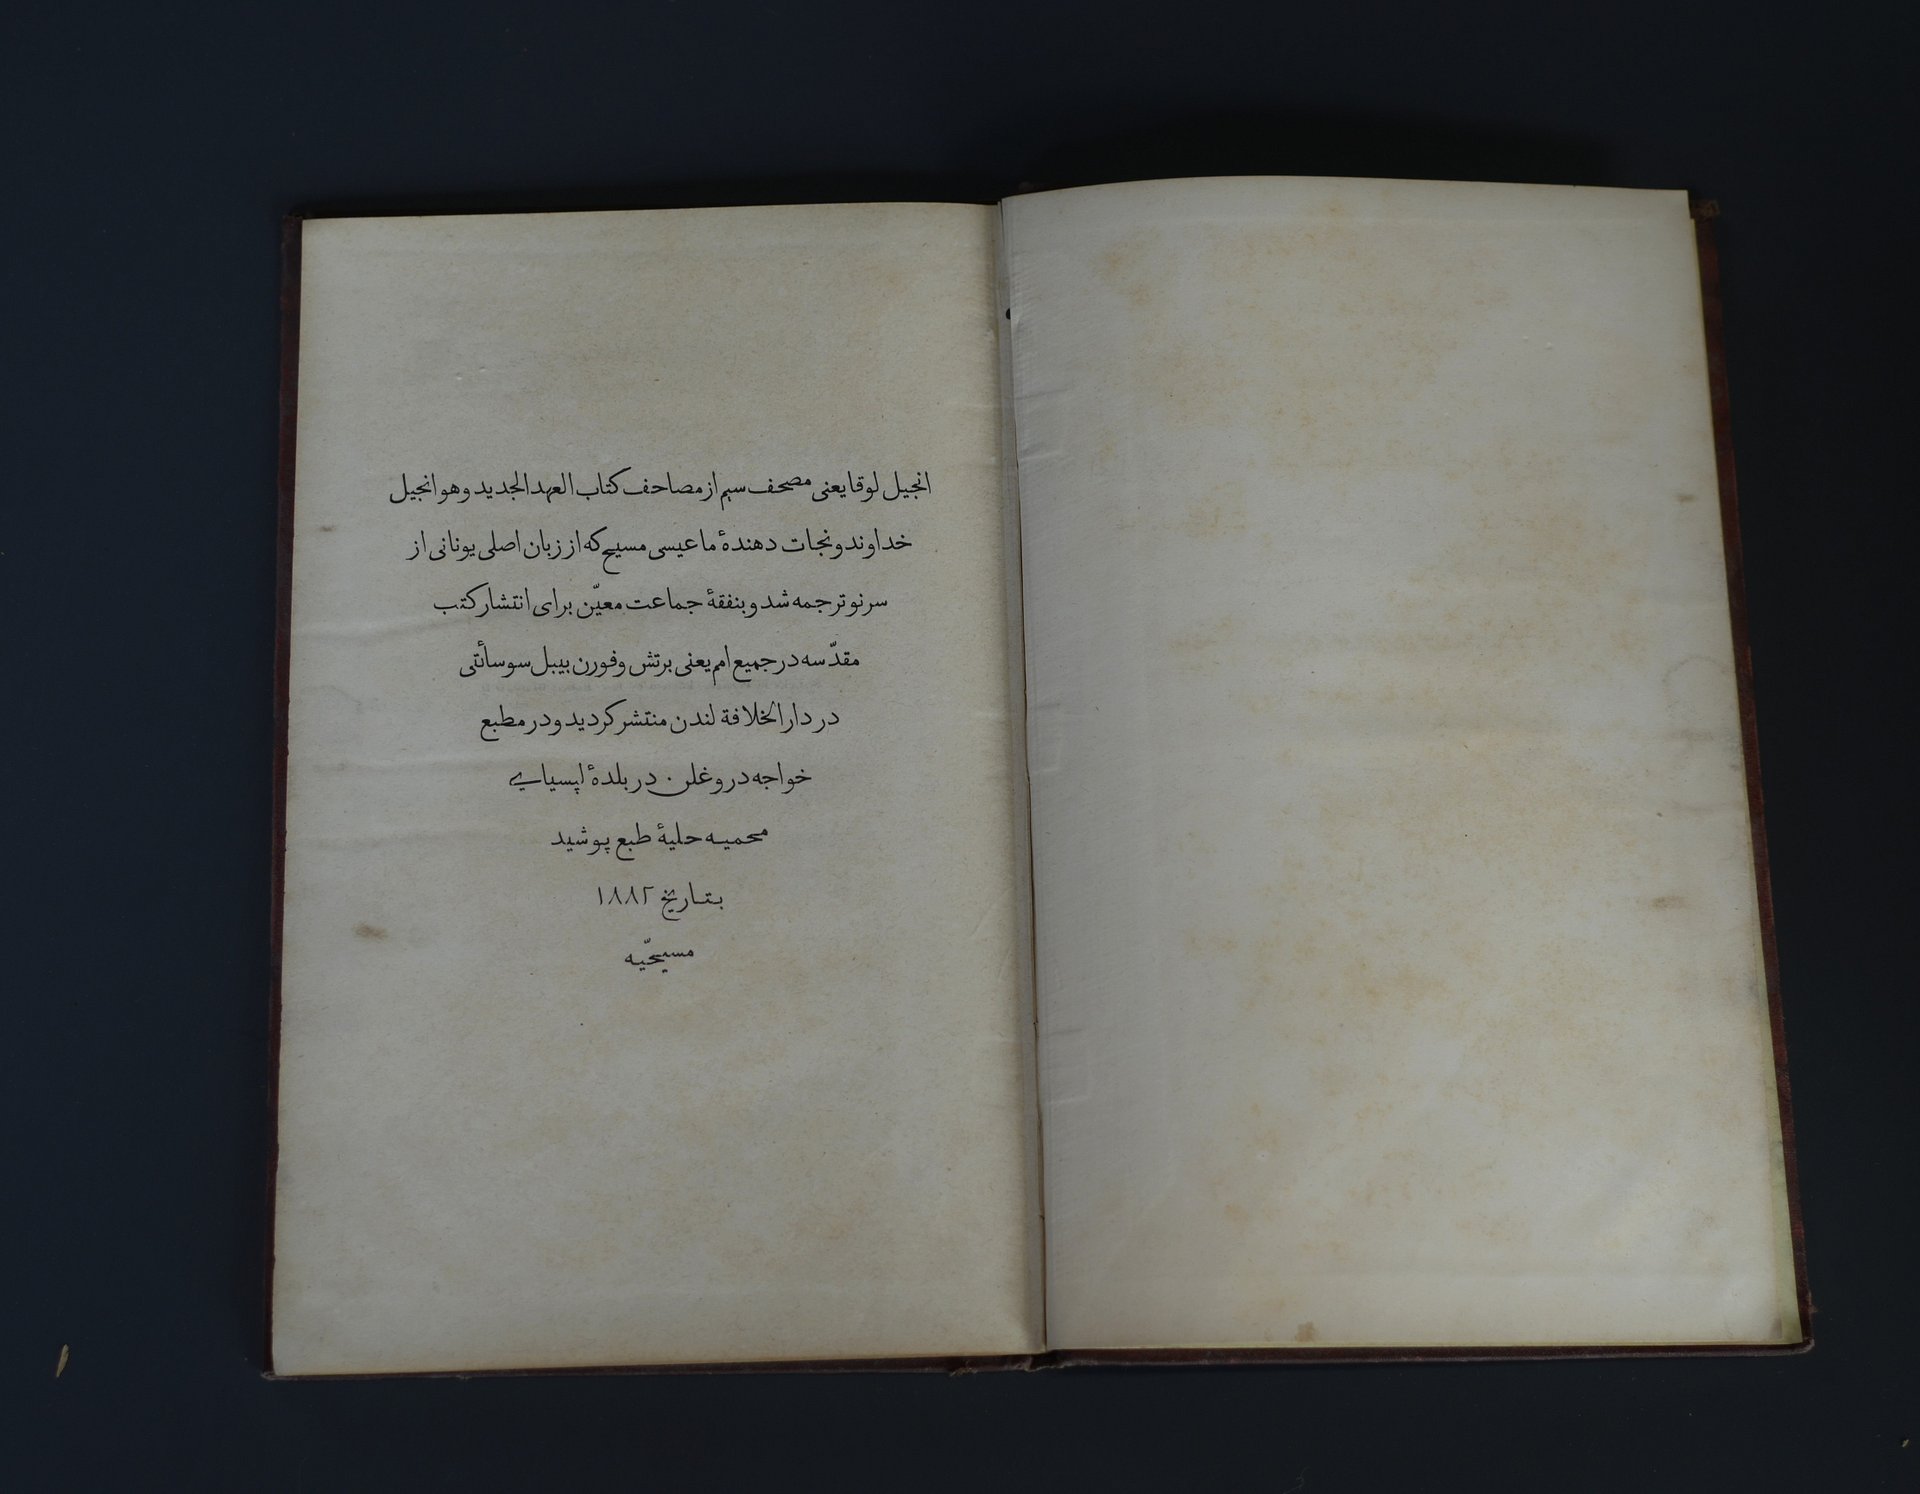 انجیل لوقا یعنی مصحف سیم از مصاحف کتاب العهد الجدید وهو انجیل
خداوند و نجات دهندهٔ ما عیسی مسیح که از زبان اصلی یونانی از
سر نو ترجمه شد و بنفقهٔ جماعت معیّن برای انتشار کتب
مقدّسه در جمیع امم یعنی برتش و فورن بیبل سوسأئتی
در دار الخلافة لندن منتشر کردید و در مطبع
خواجه دروغلن در بلدهٔ لپسیای
محمیه حلیهٔ طبع پوشید
بتاریخ ۱۸۸۲
مسیحیّه